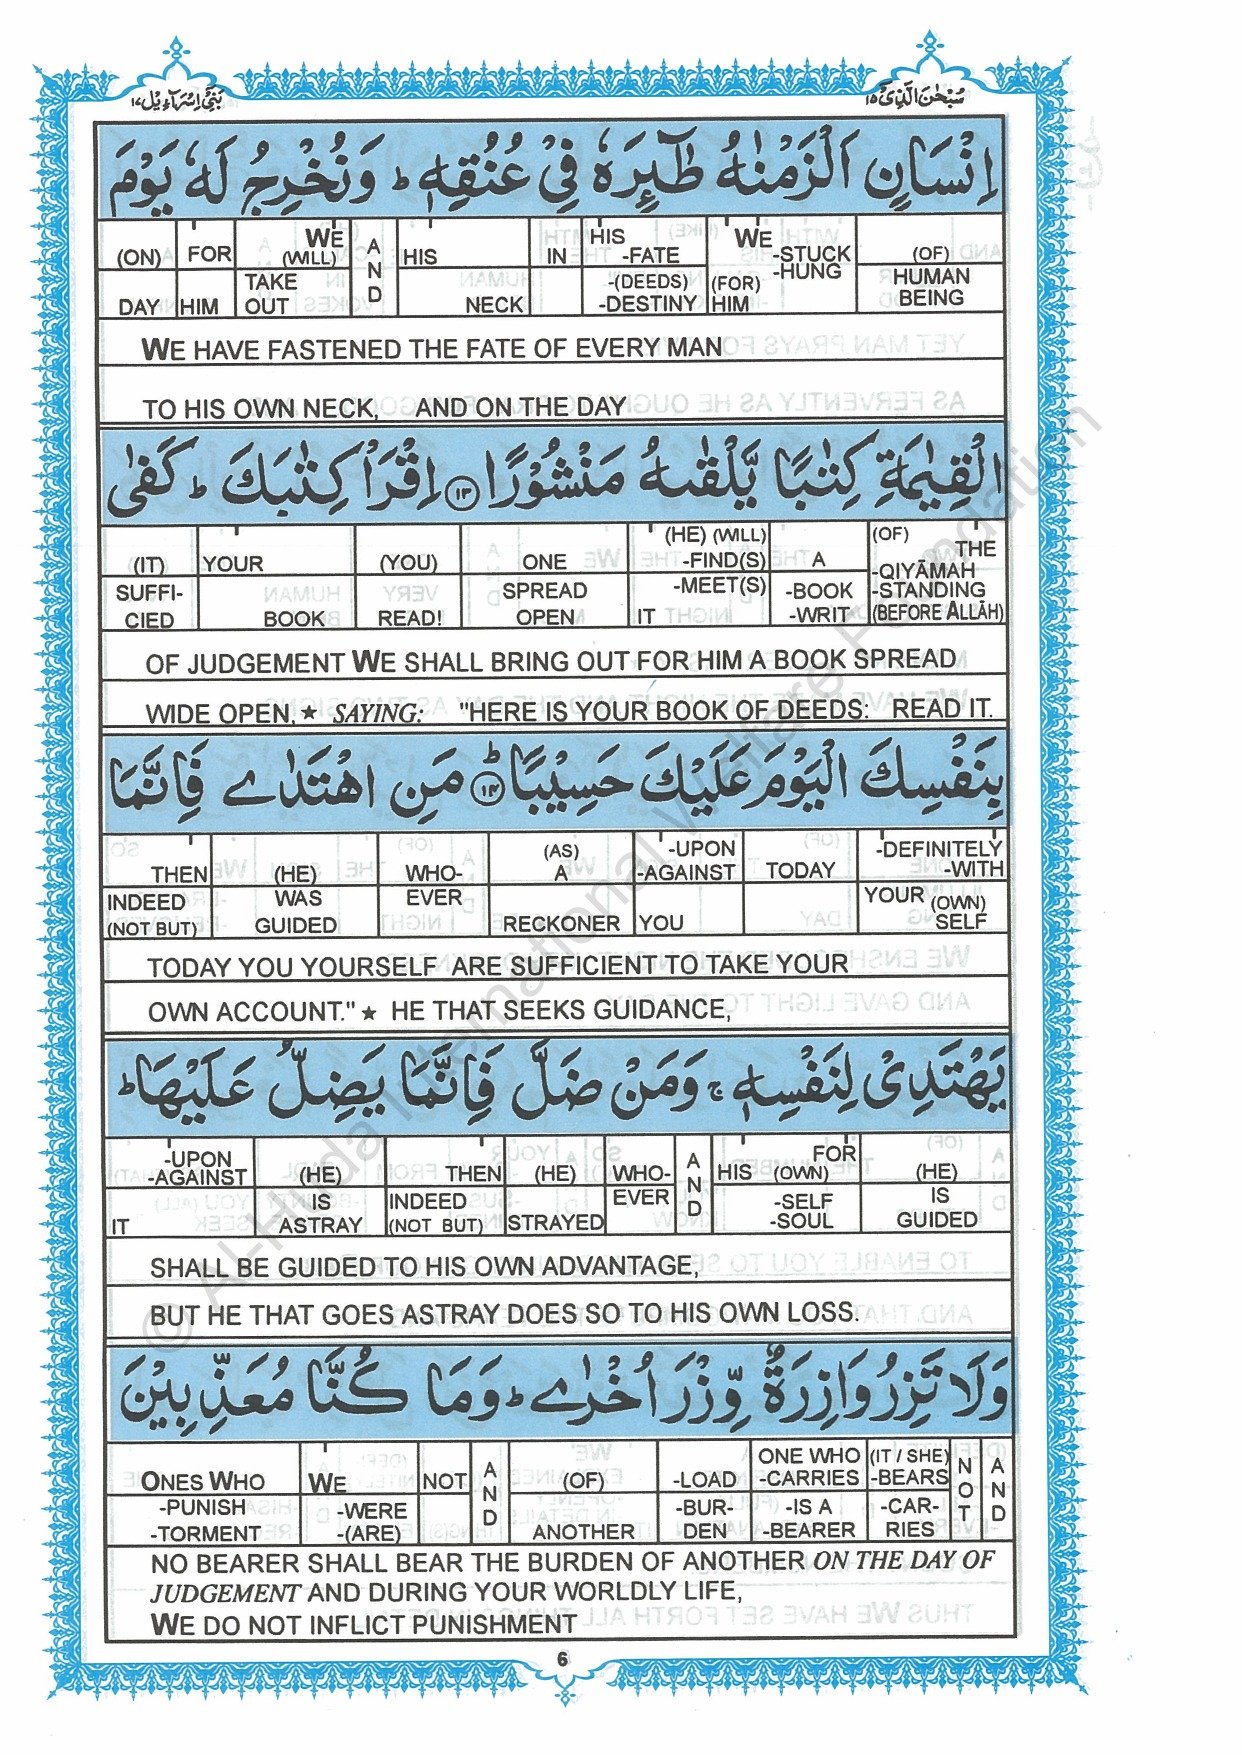 بَنِیْٓ اِسْرَآءِیْل ١٧
سُبْحٰنَ الَّذِیْ ١٥
اِنْسَانٍ اَلْزَمْنٰهُ طٰٓئِرَهٗ فِیْ عُنُقِهٖ ؕ وَنُخْرِجُ لَهٗ یَوْمَ
(ON) FOR WE (WILL) AND HIS IN HIS -FATE WE -STUCK -HUNG (OF)
DAY HIM TAKE OUT NECK -(DEEDS) -DESTINY (FOR) HIM HUMAN BEING
WE HAVE FASTENED THE FATE OF EVERY MAN
TO HIS OWN NECK, AND ON THE DAY
الْقِیٰمَةِ كِتٰبًا یَّلْقٰىهُ مَنْشُوْرًا ١٣ اِقْرَاْ كِتٰبَكَ ؕ كَفٰی
(IT) YOUR (YOU) ONE (HE) (WILL) -FIND(S) A (OF) THE -QIYĀMAH
SUFFI-CIED BOOK READ! SPREAD OPEN -MEET(S) IT -BOOK -WRIT -STANDING (BEFORE ALLĀH)
OF JUDGEMENT WE SHALL BRING OUT FOR HIM A BOOK SPREAD
WIDE OPEN, ★ SAYING: "HERE IS YOUR BOOK OF DEEDS: READ IT.
بِنَفْسِكَ الْیَوْمَ عَلَیْكَ حَسِیْبًا ؕ ١٤ مَنِ اهْتَدٰی فَاِنَّمَا
THEN (HE) WHO- (AS) A -UPON -AGAINST TODAY -DEFINITELY -WITH
INDEED (NOT BUT) WAS GUIDED EVER RECKONER YOU YOUR (OWN) SELF
TODAY YOU YOURSELF ARE SUFFICIENT TO TAKE YOUR
OWN ACCOUNT." ★ HE THAT SEEKS GUIDANCE,
یَهْتَدِیْ لِنَفْسِهٖ ۚ وَمَنْ ضَلَّ فَاِنَّمَا یَضِلُّ عَلَیْهَا ؕ
-UPON -AGAINST (HE) THEN (HE) WHO- AND HIS FOR (OWN) (HE)
IT IS ASTRAY INDEED (NOT BUT) STRAYED EVER -SELF -SOUL IS GUIDED
SHALL BE GUIDED TO HIS OWN ADVANTAGE,
BUT HE THAT GOES ASTRAY DOES SO TO HIS OWN LOSS.
وَلَا تَزِرُ وَازِرَةٌ وِّزْرَ اُخْرٰی ؕ وَمَا كُنَّا مُعَذِّبِیْنَ
ONES WHO WE NOT AND (OF) -LOAD ONE WHO -CARRIES (IT / SHE) -BEARS NOT AND
-PUNISH -TORMENT -WERE -(ARE) ANOTHER -BUR-DEN -IS A -BEARER -CAR-RIES
NO BEARER SHALL BEAR THE BURDEN OF ANOTHER ON THE DAY OF
JUDGEMENT AND DURING YOUR WORLDLY LIFE,
WE DO NOT INFLICT PUNISHMENT
6
© Al-Huda International Welfare Foundation